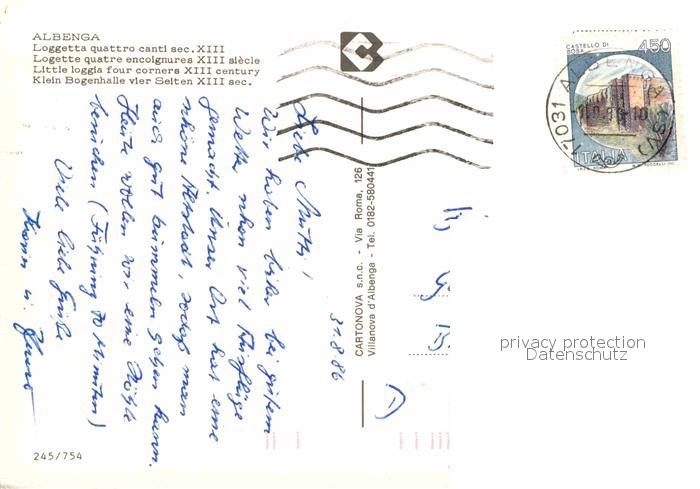 ALBENGA
Loggetta quattro canti sec. XIII
Logette quatre encoignures XIII siècle
Little loggia four corners XIII century
Klein Bogenhalle vier Seiten XIII sec.
CASTELLO DI
450
ITALIA
17031
31.8.86
Liebe Mutti!
Wir haben bisher bei gutem
Wetter schon viel Ausflüge
gemacht. Unser Ort hat eine
schöne Altstadt, sodaß man
auch gut bummeln gehen kann.
Heute wollen wir eine Höhle
besuchen (Führung 70 Minuten)
Viele liebe Grüße
Karin u.
CARTONOVA s.n.c. - Via Roma, 126
Villanova d'Albenga - Tel. 0182-580441
privacy protection
Datenschutz
245/754